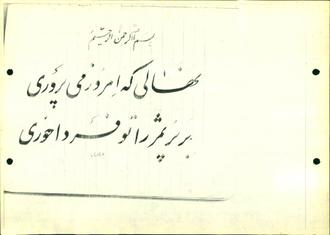 بسم الله الرحمن الرحیم
نهالی که امروز می پروری
بر پرثمر را تو فردا خوری